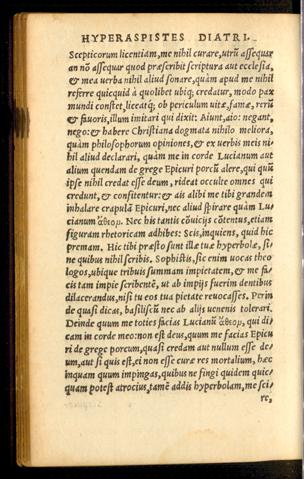 HYPERASPISTES DIATRI.
Scepticorum licentiam, me nihil curare, utrũ assequar
an nõ assequar quod præscribit scriptura aut ecclesia,
& mea uerba nihil aliud sonare, quàm apud me nihil
referre quicquid à quolibet ubiq; credatur, modo pax
mundi constet, liceatq; ob periculum uitæ, famæ, rerũ
& fauoris, illum imitari qui dixit: Aiunt, aio: negant,
nego: & habere Christiana dogmata nihilo meliora,
quàm philosophorum opiniones, & ex uerbis meis ni=
hil aliud declarari, quàm me in corde Lucianum aut
alium quendam de grege Epicuri porcũ alere, qui quũ
ipse nihil credat esse deum, rideat occulte omnes qui
credunt, & confitentur: & ais alibi me tibi grandem
inhalare crapulã Epicuri, nec aliud spirare quàm Lu=
cianum ἄθεον. Nec his tantis cõuicijs cõtentus, etiam
figuram rhetoricam adhibes: Scis, inquiens, quid hic
premam. Hic tibi præsto sunt illæ tuæ hyperbolæ, si=
ne quibus nihil scribis. Sophistis, sic enim uocas theo
logos, ubique tribuis summam impietatem, & me fa=
cis tam impie scribentẽ, ut ab impijs fuerim dentibus
dilacerandus, nisi tu eos tua pietate reuocasses. Perin
de quasi dicas, basiliscũ nec ab alijs uenenis tolerari.
Deinde quum me toties facias Lucianũ ἄθεον, qui di=
cam in corde meo: non est deus, quum me facias Epicu
ri de grege porcum, quasi credam aut nullum esse de=
um, aut si quis est, ei non esse curæ res mortalium, hæc
inquam quum impingas, quibus ne fingi quidem quic=
quam potest atrocius, tamẽ addis hyperbolam, me sci=
re,